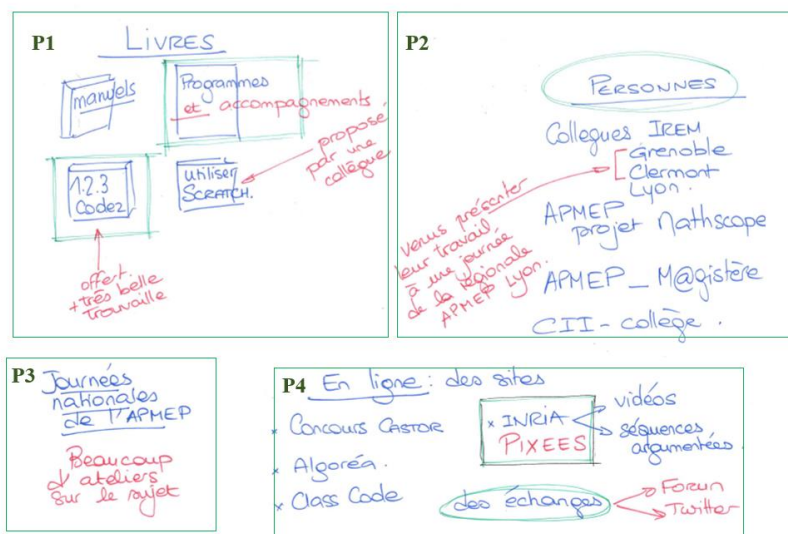 P1
LIVRES
manuels
Programmes
et accompagnements
1.2.3
Codez
utiliser
SCRATCH.
proposé
par une
collègue
offert.
+ très belle
trouvaille
P2
PERSONNES
Collègues IREM
Grenoble
Clermont
Lyon.
venus présenter
leur travail
à une journée
de la régionale
APMEP Lyon.
APMEP
projet Mathscope
APMEP_M@gistère
CII-collège.
P3
Journées
nationales
de l'APMEP
Beaucoup
d'ateliers
sur le sujet
P4
En ligne : des sites
x Concours CASTOR
x Algoréa.
x Class Code
x INRIA
PIXEES
vidéos
séquences
argumentées.
des échanges
Forum
Twitter